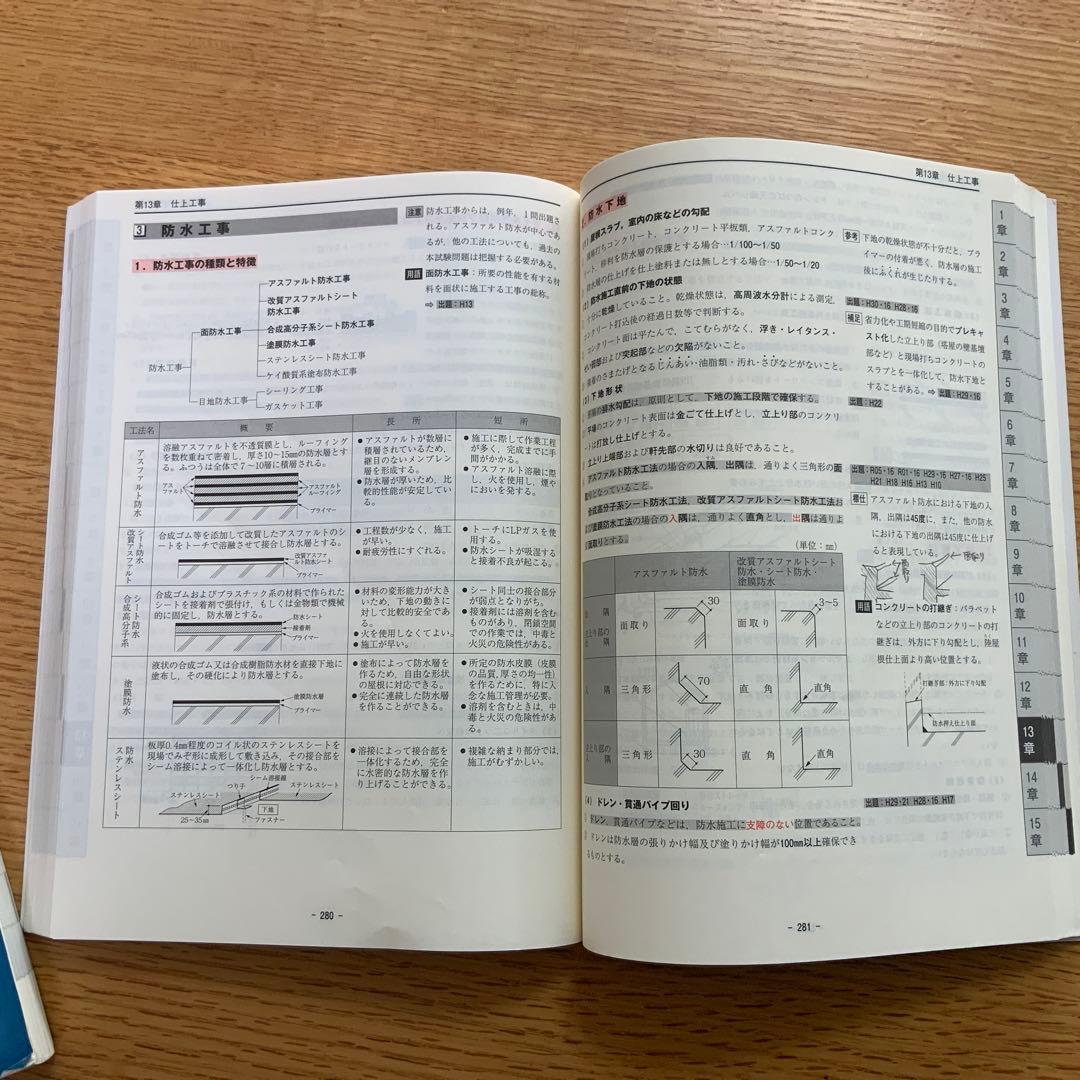 第13章 仕上工事
3 防水工事
注意 防水工事からは，例年，1問出題さ
れる。アスファルト防水が中心であ
るが，他の工法についても，過去の
本試験問題は把握する必要がある。
1．防水工事の種類と特徴
用語 面防水工事：所要の性能を有する材
料を面状に施工する工事の総称。
⇨ 出題：H13
防水工事
面防水工事
アスファルト防水工事
改質アスファルトシート
防水工事
合成高分子系シート防水工事
塗膜防水工事
ステンレスシート防水工事
ケイ酸質系塗布防水工事
目地防水工事
シーリング工事
ガスケット工事
工法名 概要 長所 短所
アスファルト防水
溶融アスファルトを不透質膜とし，ルーフィング
を数枚重ねて密着し，厚さ10～15㎜の防水層とす
る。ふつうは全体で7～10層に積層される。
アス
ファルト
アスファルト
ルーフィング
プライマー
●アスファルトが数層に
積層されているため，
継目のないメンブレン
層を形成する。
●防水層が厚いため，比
較的性能が安定してい
る。
●施工に際して作業工程
が多く，完成までに手
間がかかる。
●アスファルト溶融に際
し，火を使用し，煙や
においを発する。
改質アスファルトシート防水
合成ゴム等を添加して改質したアスファルトのシ
ートをトーチで溶融させて接合し防水層とする。
改質アスファ
ルト防水シート
プライマー
●工程数が少なく，施工
が早い。
●耐疲労性にすぐれる。
●トーチにLPガスを使
用する。
●防水シートが吸湿する
と接着不良が起こる。
合成高分子系シート防水
合成ゴムおよびプラスチック系の材料で作られた
シートを接着剤で張付け，もしくは金物類で機械
的に固定し，防水層とする。
防水シート
接着剤
プライマー
●材料の変形能力が大き
いため，下地の動きに
対して比較的安全であ
る。
●火を使用しなくてよい。
●施工が早い。
●シート同士の接合部分
が弱点となりがち。
●接着剤には溶剤を含む
ものがあり，閉鎖空間
での作業では，中毒と
火災の危険性がある。
塗膜防水
液状の合成ゴム又は合成樹脂防水材を直接下地に
塗布し，その硬化により防水層とする。
塗膜防水層
プライマー
●塗布によって防水層を
作るため，自由な形状
の屋根に対応できる。
●完全に連続した防水層
を作ることができる。
●所定の防水皮膜（皮膜
の品質，厚さの均一性）
を作るために，特に入
念な施工管理が必要。
●溶剤を含むときは，中
毒と火災の危険性があ
る。
ステンレスシート防水
板厚0.4㎜程度のコイル状のステンレスシートを
現場でみぞ形に成形して敷き込み，その接合部を
シーム溶接によって一体化し防水層とする。
シーム溶接線
つり子
ステンレスシート
ステンレスシート
下地
25～35㎜
ファスナー
●溶接によって接合部を
一体化するため，完全
に水密的な防水層を作
り上げることができる。
●複雑な納まり部分では，
施工がむずかしい。
- 280 -
第13章 仕上工事
防水下地
屋根スラブ，室内の床などの勾配
打ちコンクリート，コンクリート平板類，アスファルトコンク
ート，砕利を防水層の保護とする場合…1/100～1/50
防水層の仕上げを仕上塗料または無しとする場合…1/50～1/20
参考 下地の乾燥状態が不十分だと，プラ
イマーの付着が悪く，防水層の施工
後にふくれが生じたりする。
(2) 防水施工直前の下地の状態
十分に乾燥していること。乾燥状態は，高周波水分計による測定，
コンクリート打込後の経過日数等で判断する。
コンクリート面は平たんで，こてむらがなく，浮き・レイタンス・
ぜい弱部および突起部などの欠陥がないこと。
接着のさまたげとなるじんあい・油脂類・汚れ・さびなどがないこと。
出題：H30・16 H28・16
補足 省力化や工期短縮の目的でプレキャ
スト化した立上り部（塔屋の壁基壇
部など）と現場打ちコンクリートの
スラブとを一体化して，防水下地と
することがある。⇨ 出題：H29・16
(3) 下地形状
の排水勾配は，原則として，下地の施工段階で確保する。
平場のコンクリート表面は金ごて仕上げとし，立上り部のコンクリ
ートは打放し仕上げとする。
立上り上端部および軒先部の水切りは良好であること。
アスファルト防水工法の場合の入隅，出隅は，通りよく三角形の面
取りとなっていること。
合成高分子系シート防水工法，改質アスファルトシート防水工法お
よび塗膜防水工法の場合の入隅は，通りよく直角とし，出隅は通りよ
く面取りとする。
出題：H22
出題：R05・16 R01・16 H29・16 H27・16 H25
H21 H18 H16 H13 H10
標仕 アスファルト防水における下地の入
隅，出隅は45度に，また，他の防水
における下地の出隅は45度に仕上げ
ると表現している。
（単位：㎜）
アスファルト防水
改質アスファルトシート
防水・シート防水・
塗膜防水
隅
面取り 30
面取り 3～5
立上り部の
隅
入隅
三角形 70
直角 直角
立上り部の
入隅
三角形 30
直角 直角
用語 コンクリートの打継ぎ：パラペット
などの立上り部のコンクリートの打
継ぎは，外方に下り勾配とし，陸屋
根仕上面より高い位置とする。
打継ぎ部：外方に下り勾配
防水押え仕上り面
(4) ドレン・貫通パイプ回り
出題：H29・21 H28・16 H17
ドレン，貫通パイプなどは，防水施工に支障のない位置であること。
ドレンは防水層の張りかけ幅及び塗りかけ幅が100㎜以上確保でき
るものとする。
- 281 -
1章
2章
3章
4章
5章
6章
7章
8章
9章
10章
11章
12章
13章
14章
15章